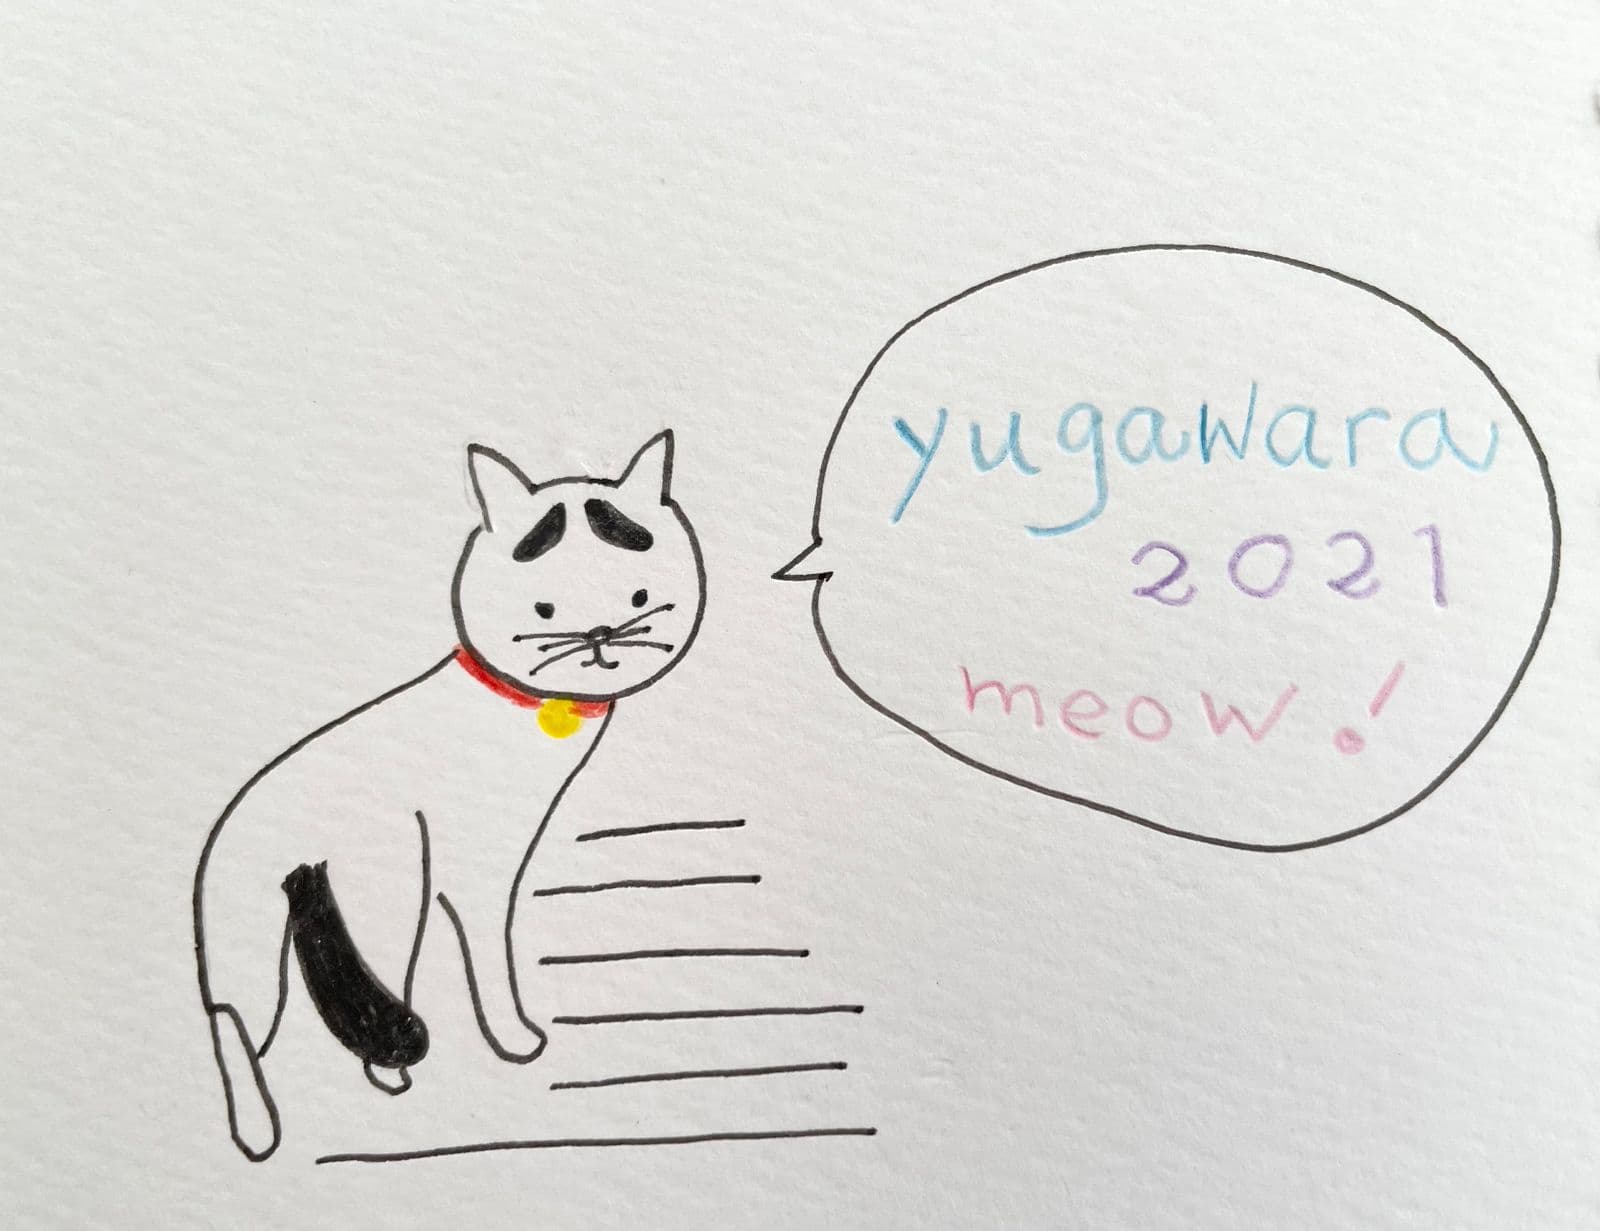 yugawara
2021
meow!